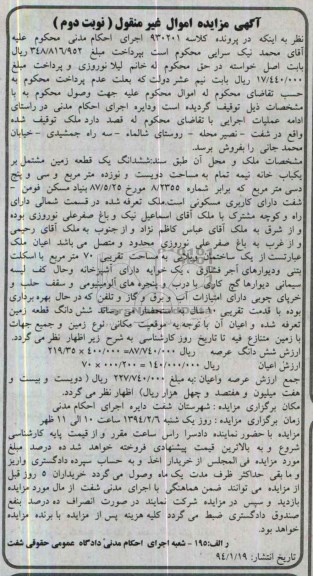 آگهی مزایده اموال غیر منقول ( نوبت دوم )
نظر به اینکه در پرونده کلاسه ۹۳۰۲۰۱ اجرای احکام مدنی محکوم علیه
آقای محمد نیک سرایی محکوم است بپرداخت مبلغ ۳۴۸/۸۱۶/۹۵۲ ریال
بابت اصل خواسته در حق محکوم له خانم لیلا نوروزی و پرداخت مبلغ
۱۷/۴۴۰/۰۰۰ ریال بابت نیم عشر دولت که بعلت عدم پرداخت محکوم به
حسب تقاضای محکوم له اموال محکوم علیه جهت وصول محکوم به با
مشخصات ذیل توقیف گردیده است ودایره اجرای احکام مدنی در راستای
ادامه عملیات اجرایی با تقاضای محکوم له قصد دارد ملک توقیف شده
واقع در شفت - نصیر محله - روستای شالماء - سه راه جمشیدی - خیابان
محمد جانی را بفروش برسد.
مشخصات ملک و محل آن طبق سند:ششدانگ یک قطعه زمین مشتمل بر
یکباب خانه نیمه تمام به مساحت دویست و نوزده متر مربع و سی و پنج
دسی متر مربع که برابر شماره ۸/۲۳۵۵ مورخ ۸۷/۵/۲۵ بنیاد مسکن فومن -
شفت دارای کاربری مسکونی است.ملک تعرفه شده در قسمت شمالی دارای
راه و کوچه مشترک با ملک آقای اسماعیل نیک و باغ صفرعلی نوروزی بوده
و از شرق به ملک آقای عباس کاظم نژاد و از جنوب به ملک آقای رحیمی
و از غرب به باغ صفر علی نوروزی محدود و متصل می باشد اعیان ملک
عبارتست از یک ساختمان مسکونی به مساحت تقریبی ۷۰ متر مربع با اسکلت
بتنی ودیوارهای آجر فشاری ، یک خوابه دارای آشپزخانه وحال کف لیسه
سیمانی دیوارها گچ کاری با درب و پنجره های آلومینیومی و سقف حلب و
خرپای چوبی دارای امتیازات آب و برق و گاز و تلفن که در حال بهره برداری
بوده با قدمت تقریبی ۱۰ سال به استحضار می رساند شش دانگ قطعه زمین
تعرفه شده و اعیان آن با توجه به موقعیت مکانی نوع زمین و جمیع جهات
با زمین متنازع فیه تا تاریخ روز کارشناسی به شرح زیر اظهار نظر می گردد.
ارزش شش دانگ عرصه ریال ۸۷/۷۴۰/۰۰۰= ۴۰۰/۰۰۰ × ۲۱۹/۳۵
ارزش اعیان ریال ۱۴۰/۰۰۰/۰۰۰ = ۲۰۰/۰۰۰ × ۷۰
جمع ارزش عرصه واعیان :به مبلغ ۲۲۷/۷۴۰/۰۰۰ ریال ( دویست و بیست و
هفت میلیون و هفتصد و چهل هزار ریال) اظهار نظر می گردد.
مکان برگزاری مزایده : شهرستان شفت دایره اجرای احکام مدنی
زمان برگزاری مزایده : روز یک شنبه ۱۳۹۴/۲/۶ ساعت ۱۰ الی ۱۱ ظهر
مزایده با حضور نماینده دادسرا راس ساعت مقرر و از قیمت پایه کارشناسی
شروع و به بالاترین قیمت پیشنهادی فروخته خواهد شد ده درصد مبلغ
مورد مزایده فی المجلس از خریدار اخذ و به حساب سپرده دادگستری واریز
و ما بقی حداکثر ظرف مدت یک ماه وصول می گردد خریداران ۵ روز قبل
از مزایده می توانند ضمن هماهنگی با اجرای مدنی شفت از مال مورد مزایده
بازدید و سپس در مزایده شرکت نمایند در صورت انصراف ده درصد بنفع
صندوق دادگستری ضبط می گردد کلیه هزینه پس از مزایده با برنده مزایده
خواهد بود.
ر الف:۱۹۵ - شعبه اجرای احکام مدنی دادگاه عمومی حقوقی شفت
تاریخ انتشار: ۹۴/۱/۱۹